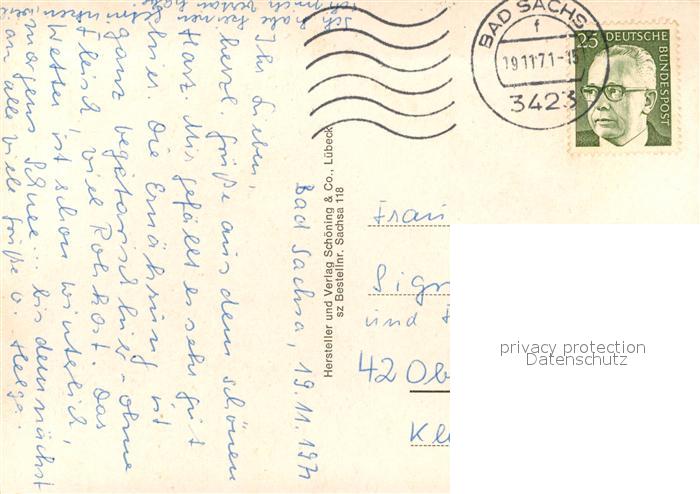 Bad Sachsa, 19.11.1971
Ihr Lieben,
herzl. Grüße aus dem schönen
Harz. Mir gefällt es sehr gut
hier. Die Ernährung ist
ganz vegetarisch hier - ohne
Fleisch, viel Rohkost. Das
Wetter ist schon winterlich,
morgens Schnee... bis demnächst
an alle viele Grüße v. Helga.
Ich habe keinen
ich mich
Hersteller und Verlag Schöning & Co., Lübeck
sz Bestellnr. Sachsa 118
BAD SACHS
f
19.11.71-15
3423
25 DEUTSCHE
BUNDESPOST
Frau
Sigr
und F
42 Ob
Kl
privacy protection
Datenschutz